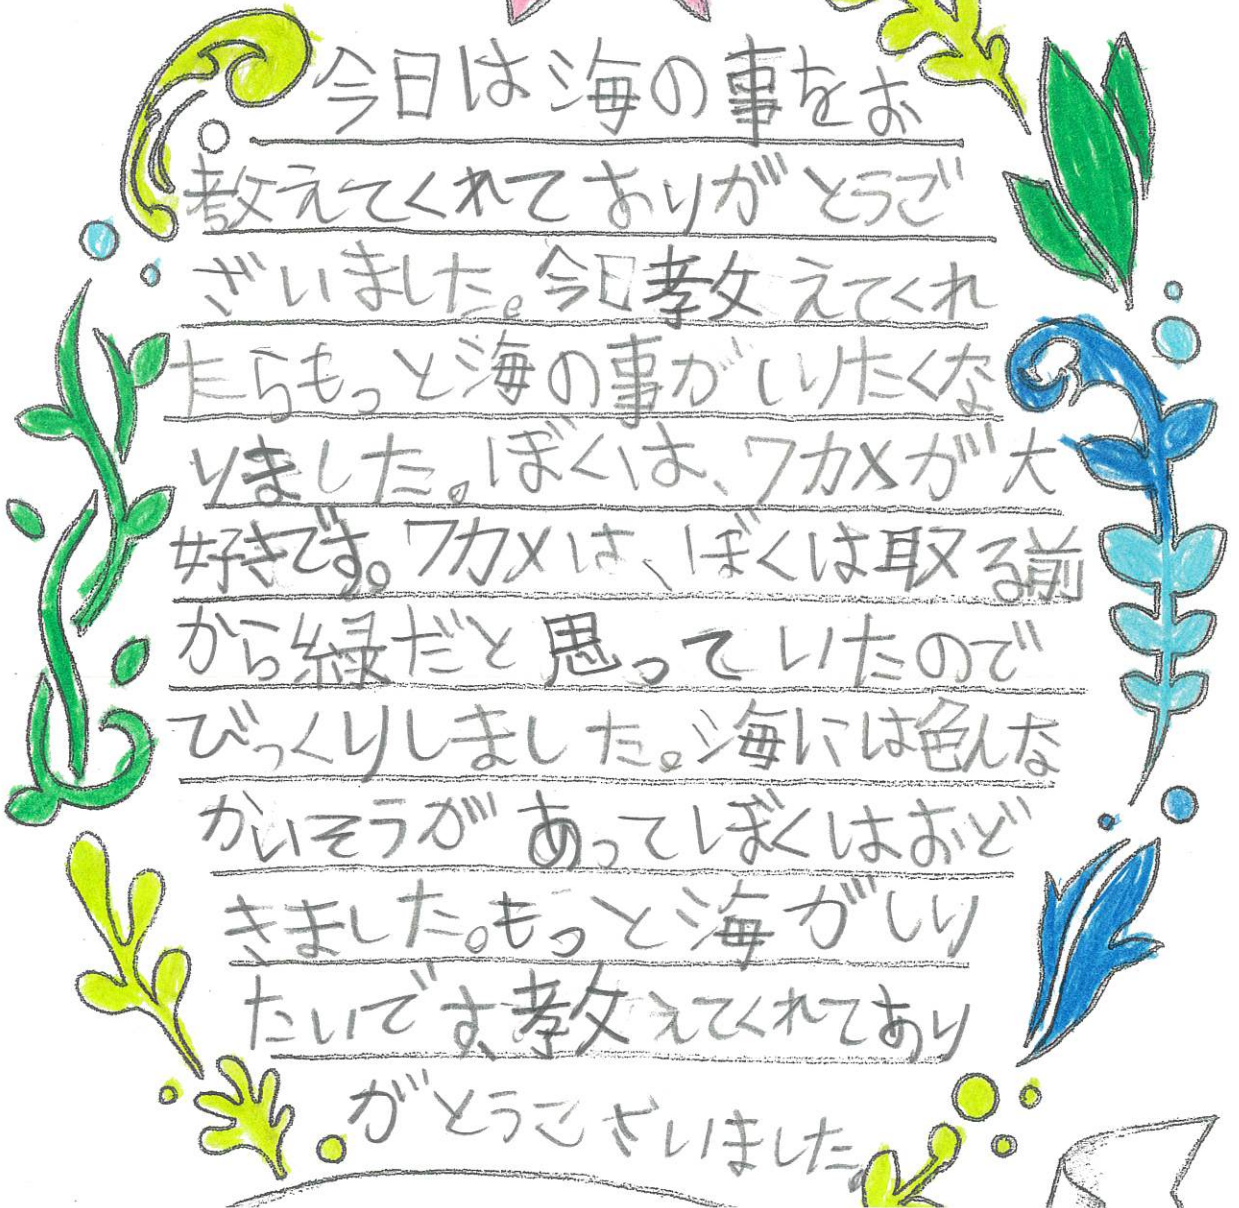 今日は海の事をお
教えてくれてありがとうご
ざいました。今日教えてくれ
たらもっと海の事がしりたくな
りました。ぼくは、ワカメが大
好きです。ワカメは、ぼくは取る前
から緑だと思っていたので
びっくりしました。海には色んな
かいそうがあってぼくはおど
きました。もっと海がしり
たいです、教えてくれてあり
がとうこざいました。